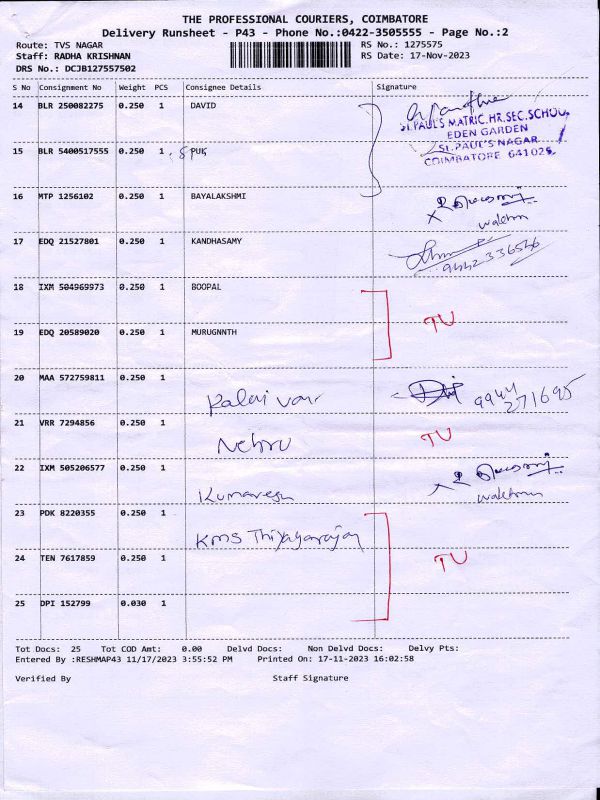 THE PROFESSIONAL COURIERS, COIMBATORE
Delivery Runsheet - P43 - Phone No.:0422-3505555 - Page No.:2
Route: TVS NAGAR RS No.: 1275575
Staff: RADHA KRISHNAN RS Date: 17-Nov-2023
DRS No.: DCJB127557502
S No Consignment No Weight PCS Consignee Details Signature
14 BLR 250082275 0.250 1 DAVID
ST.PAUL'S MATRIC.HR.SEC.SCHOOL
EDEN GARDEN
ST.PAUL'S NAGAR
COIMBATORE 641025
15 BLR 5400517555 0.250 1 PUK
16 MTP 1256102 0.250 1 BAYALAKSHMI
17 EDQ 21527801 0.250 1 KANDHASAMY
9442336546
18 IXM 504969973 0.250 1 BOOPAL
TU
19 EDQ 20589020 0.250 1 MURUGNNTH
20 MAA 572759811 0.250 1
9944
271695
21 VRR 7294856 0.250 1
Nehru TU
22 IXM 505206577 0.250 1
Kumaresn
23 PDK 8220355 0.250 1
KMS Thiyagarajan
24 TEN 7617859 0.250 1 TU
25 DPI 152799 0.030 1
Tot Docs: 25 Tot COD Amt: 0.00 Delvd Docs: Non Delvd Docs: Delvy Pts:
Entered By :RESHMAP43 11/17/2023 3:55:52 PM Printed On: 17-11-2023 16:02:58
Verified By Staff Signature